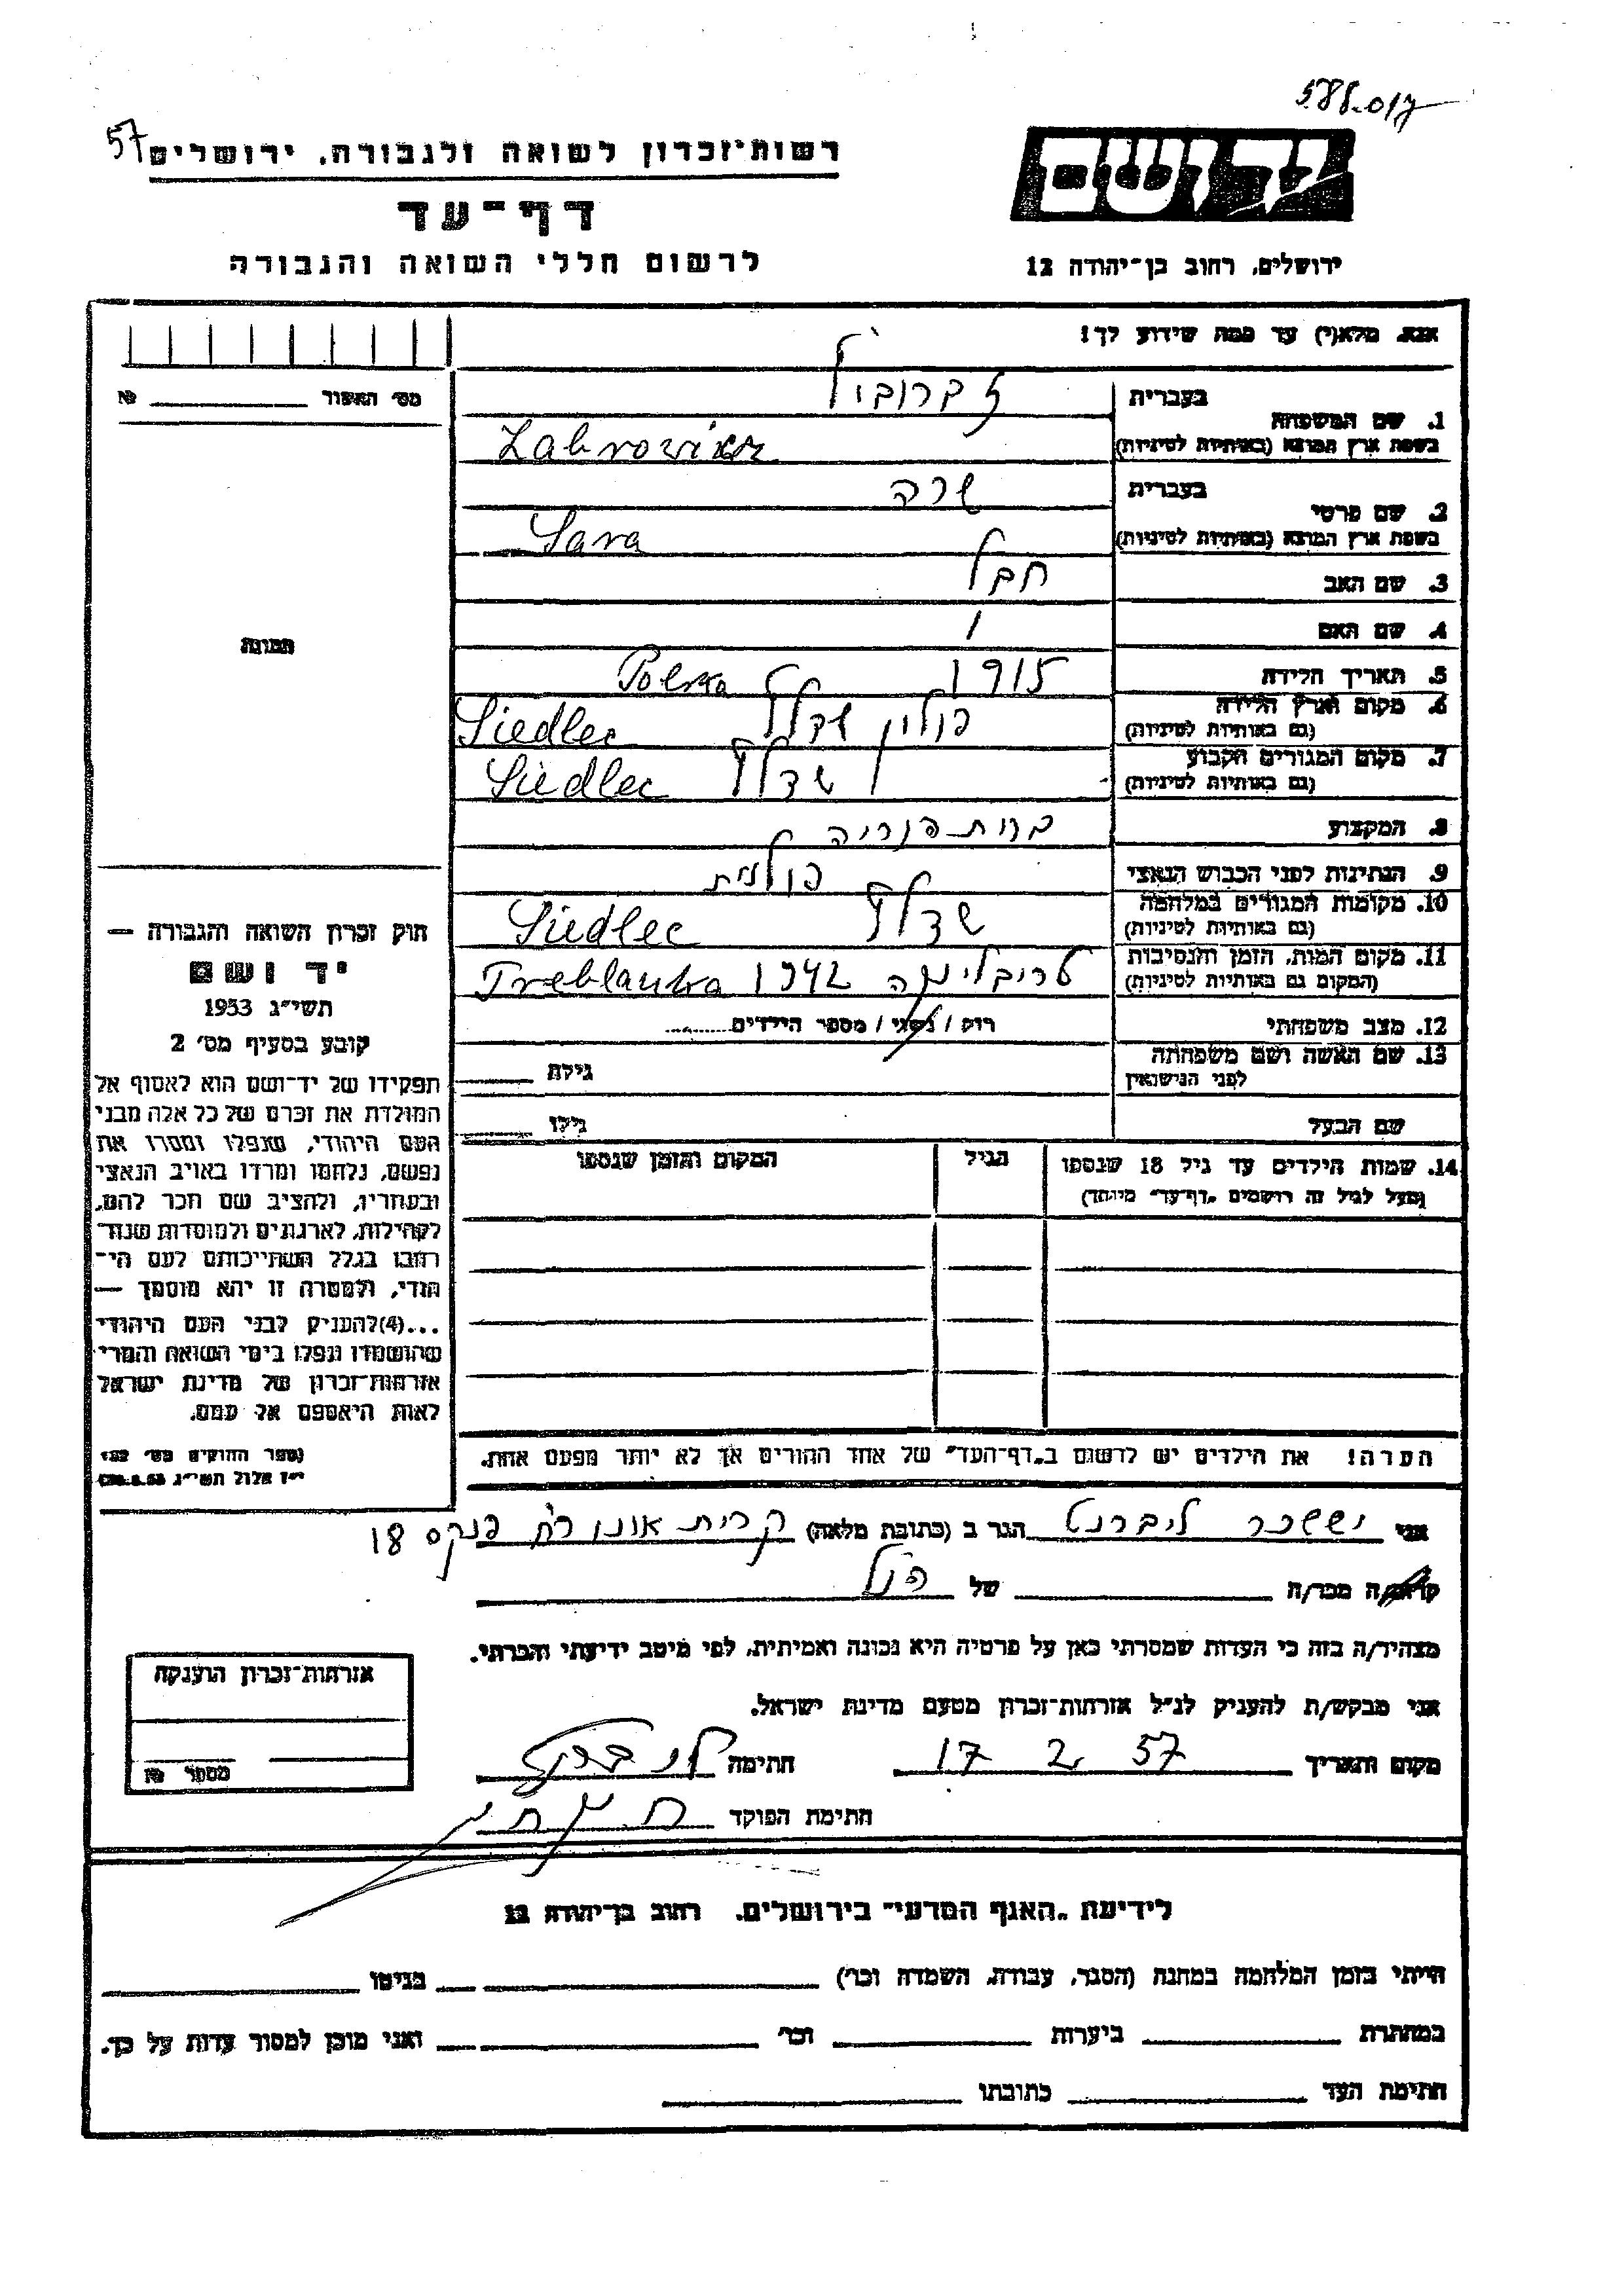 57
רשות־זכרון לשואה ולגבורה, ירושלים
דף־עד
לרשום חללי השואה והגבורה
יד ושם
ירושלים, רחוב בן־יהודה 12
אנא, מלא(י) עד כמה שידוע לך!
מס׳ האשור № 
1. שם המשפחה
בעברית
בשפת ארץ המוצא (באותיות לטיניות)
2. שם פרטי
בעברית שרה
בשפת ארץ המוצא (באותיות לטיניות) Sara
3. שם האב
4. שם האם /
5. תאריך הלידה 1915 Polska
6. מקום וארץ הלידה פולין שדלץ Siedlec
(גם באותיות לטיניות)
7. מקום המגורים הקבוע שדלץ Siedlec
(גם באותיות לטיניות)
8. המקצוע
9. הנתינות לפני הכבוש הנאצי פולנית
10. מקומות המגורים במלחמה שדלץ Siedlec
(גם באותיות לטיניות)
11. מקום המות, הזמן והנסיבות טריבלינקה 1942
(המקום גם באותיות לטיניות)
12. מצב משפחתי רווק / נשוי / מספר הילדים
13. שם האשה ושם משפחתה גילה
לפני הנישואין
שם הבעל גילו
14. שמות הילדים עד גיל 18 שנספו הגיל המקום והזמן שנספו
(מעל לגיל זה רושמים „דף־עד״ מיוחד)
הערה! את הילדים יש לרשום ב„דף־העד״ של אחד ההורים אך לא יותר מפעם אחת.
תמונה
חוק זכרון השואה והגבורה —
יד ושם
תשי״ג 1953
קובע בסעיף מס׳ 2
תפקידו של יד־ושם הוא לאסוף אל
המולדת את זכרם של כל אלה מבני
העם היהודי, שנפלו ומסרו את
נפשם, נלחמו ומרדו באויב הנאצי
ובעוזריו, ולהציב שם וזכר להם,
לקהילות, לארגונים ולמוסדות שנח־
רבו בגלל השתייכותם לעם הי־
הודי, ולמטרה זו יהא מוסמך —
...(4)להעניק לבני העם היהודי
שהושמדו ונפלו בימי השואה והמרי
אזרחות־זכרון של מדינת ישראל
לאות היאספם אל עמם.
(ספר החוקים מס׳ 132
י״ז אלול תשי״ג
אני יששכר ליברנט הגר ב (כתובת מלאה) קרית אונו רח׳ פנקס 18
קרוב/ה מכר/ה של הנ״ל
מצהיר/ה בזה כי העדות שמסרתי כאן על פרטיה היא נכונה ואמיתית, לפי מיטב ידיעתי והכרתי.
אני מבקש/ת להעניק לנ״ל אזרחות־זכרון מטעם מדינת ישראל.
מקום ותאריך 17 2 57 חתימה
חתימת הפוקד
אזרחות־זכרון הוענקה
מספר №
לידיעת „האגף המדעי״ בירושלים, רחוב בן־יהודה 12
הייתי בזמן המלחמה במחנה (הסגר, עבודה, השמדה וכו׳) בגיטו
במחתרת ביערות וכו׳ ואני מוכן למסור עדות על כך.
חתימת העד כתובתו